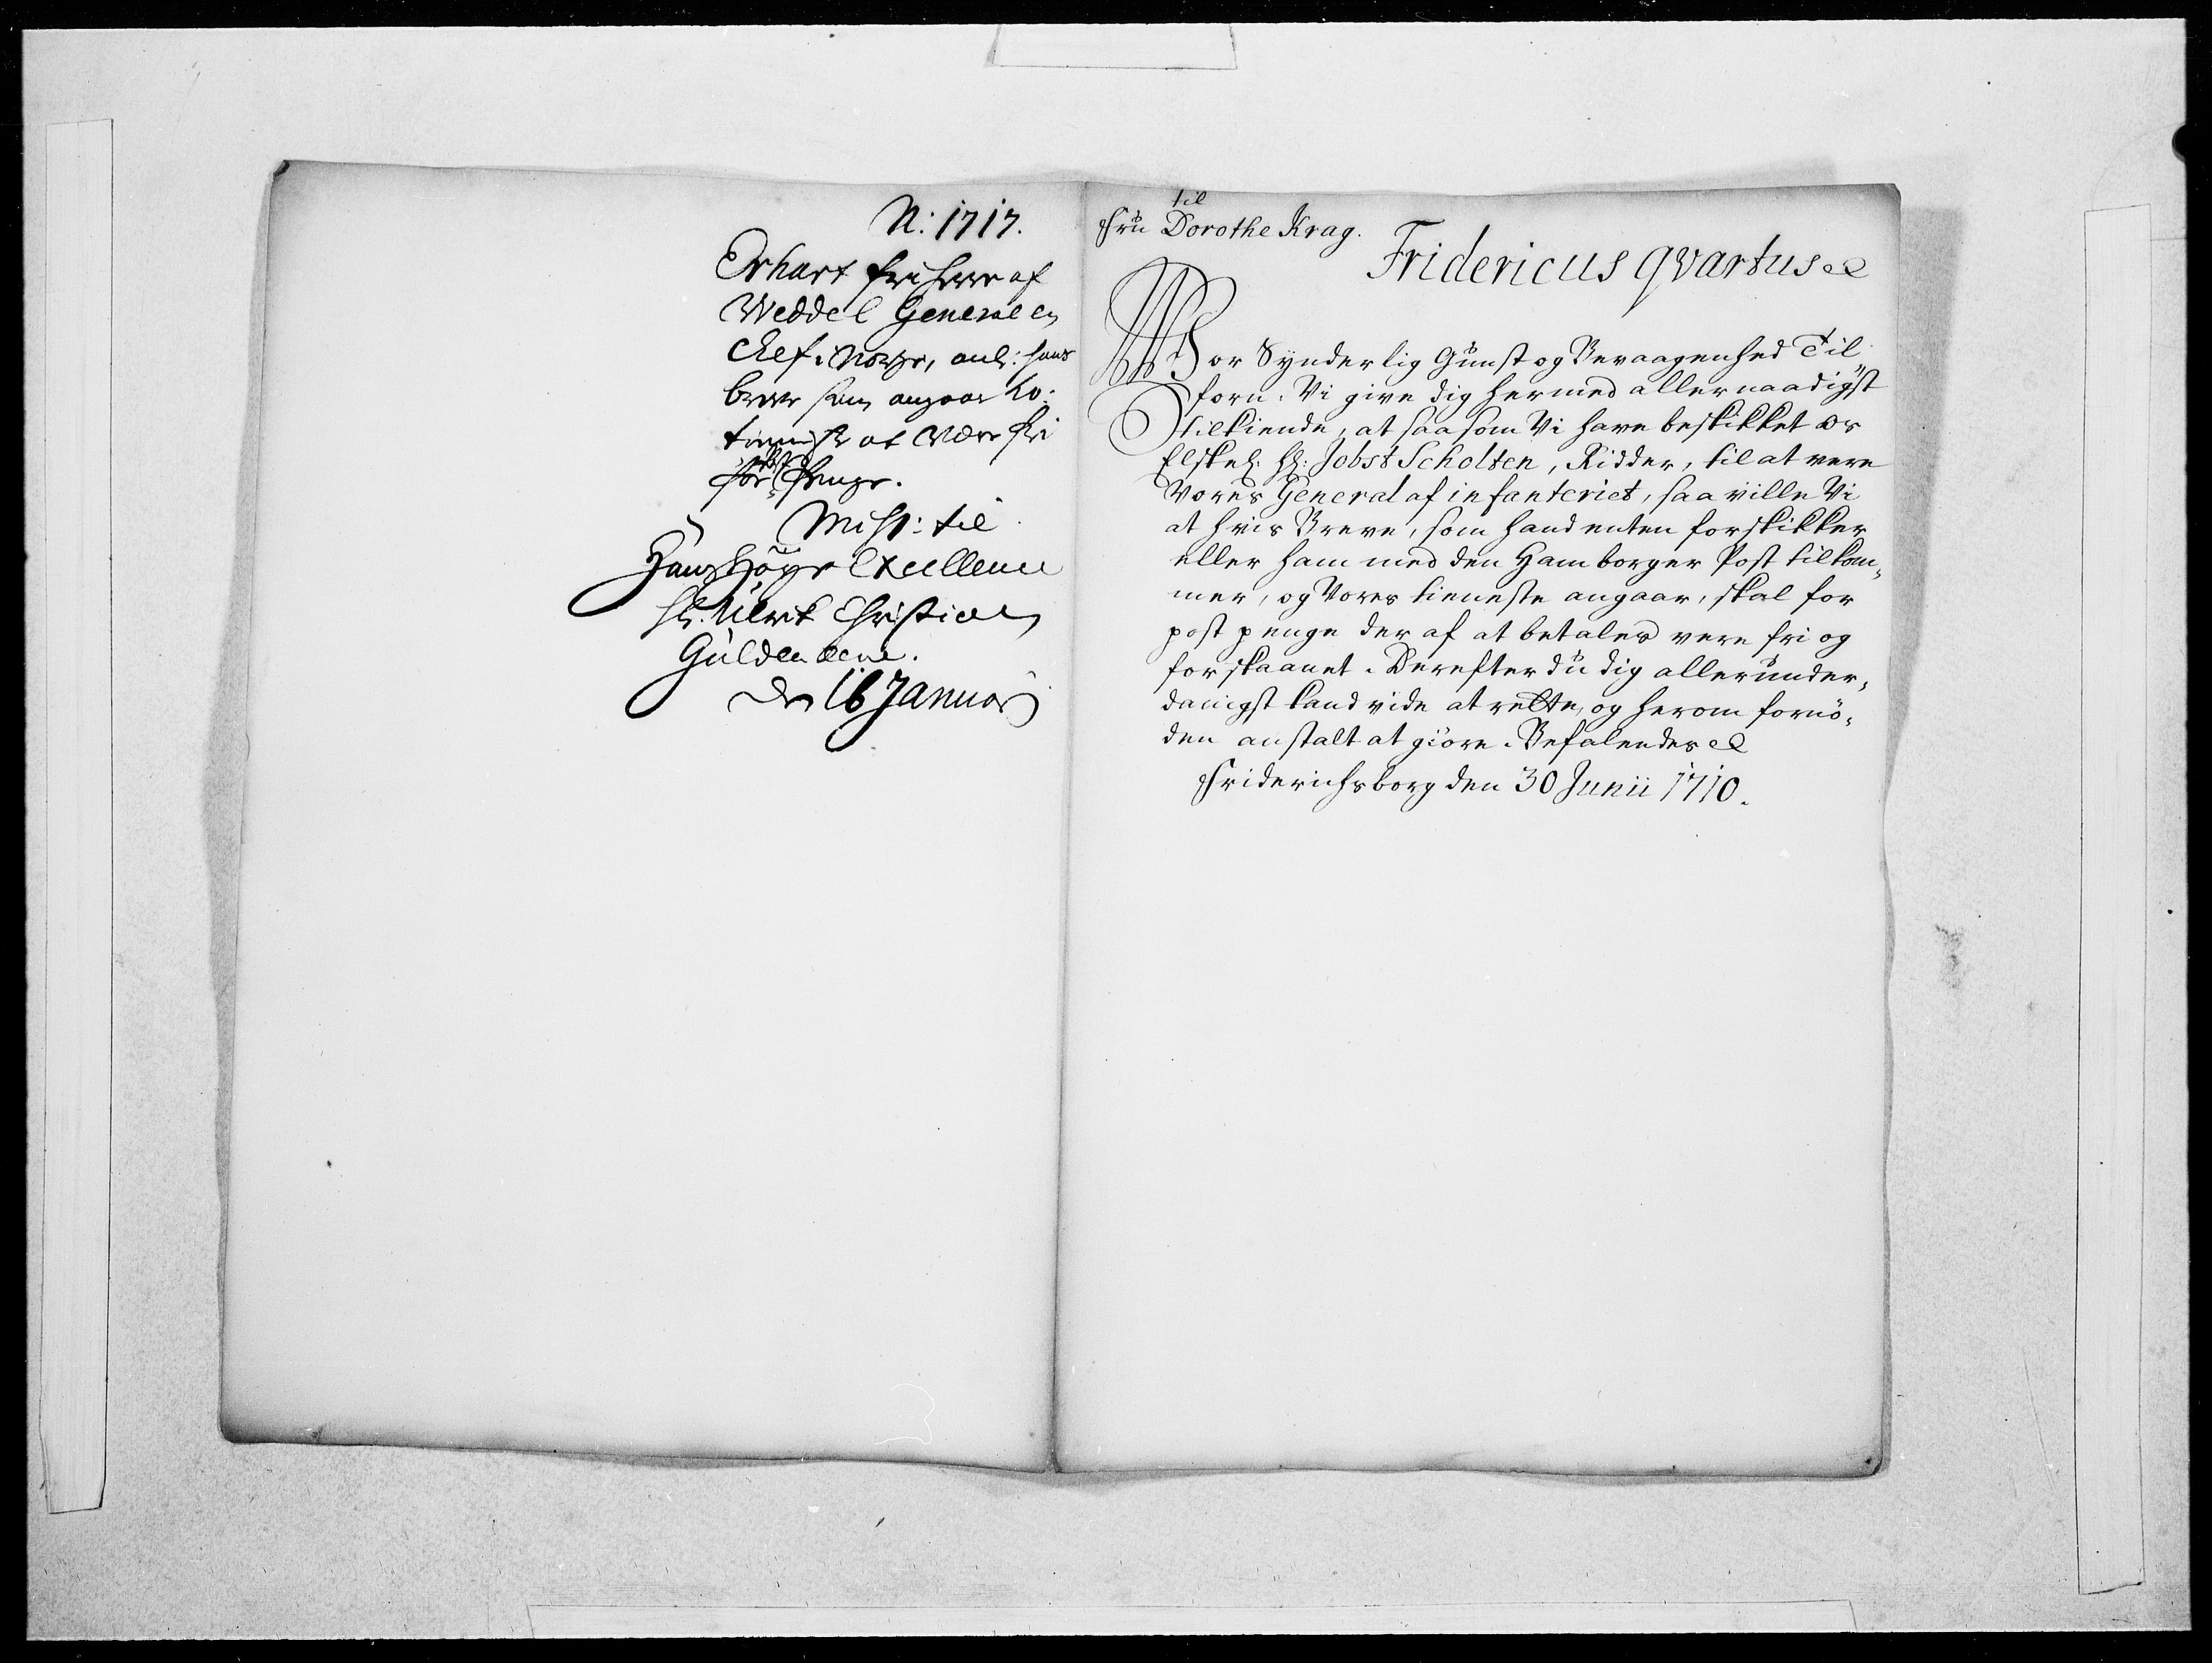 N: 1717.
Erhart friherre af
Weddel General en
Chef i Norge, anl: hans
breve som angaar Ko:
tienniste at være fri
for post penge.
Miss: til
Hans Høye Excellence
Hr. Ulrik Christian
Güldenløve.
den 16 Januar
til
Frü Dorothe Krag.
Fridericus qvartus etc
Vor Synderlig Günst og Bevaagenhed Til„
forn. Vi give dig hermed allernaadigst
tilkiende, at saasom Vi have beskikket os
Elskel: Hr: Jobst Scholten, Ridder, til at vere
Vores General af infanteriet, saa ville Vi
at hvis Breve, som hand enten forskikker
eller ham med den Hamborger Post tilkom„
mer, og Vores tieneste angaar, skal for
post penge der af at betales vere fri og
forskaanet. Derefter dü dig alleründer„
danigst kand vide at rette, og herom fornö„
den anstalt at giöre. Befalendes etc
Friderichsborg den 30 Junii 1710.